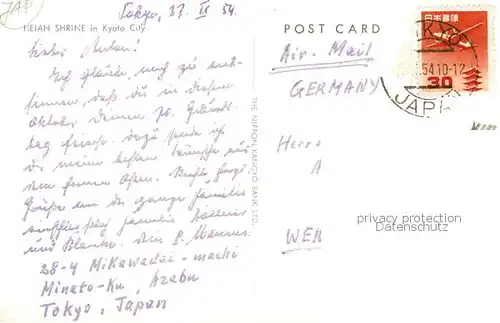 JAP
Tokyo, 27. IX 54.
HEIAN SHRINE in Kyoto City
Ich glaube, mich zu ent-
sinnen, daß du in diesem
Oktober Deinen 70. Geburts-
tag feierst. Dazu sende ich
dir meine besten Wünsche aus
dem fernen Osten. Recht herzl.
Grüße an die ganze Familie
Familie
und Dein
28-4 Mikawadai-machi
Minato-Ku, Azabu
Tokyo, Japan
THE NIPPON KANGYO BANK, LTD.
POST CARD
Air-Mail
GERMANY
Herrn
A
WEH
日本郵便
30
54.10-12
JAPAN
privacy protection
DATENSCHUTZ